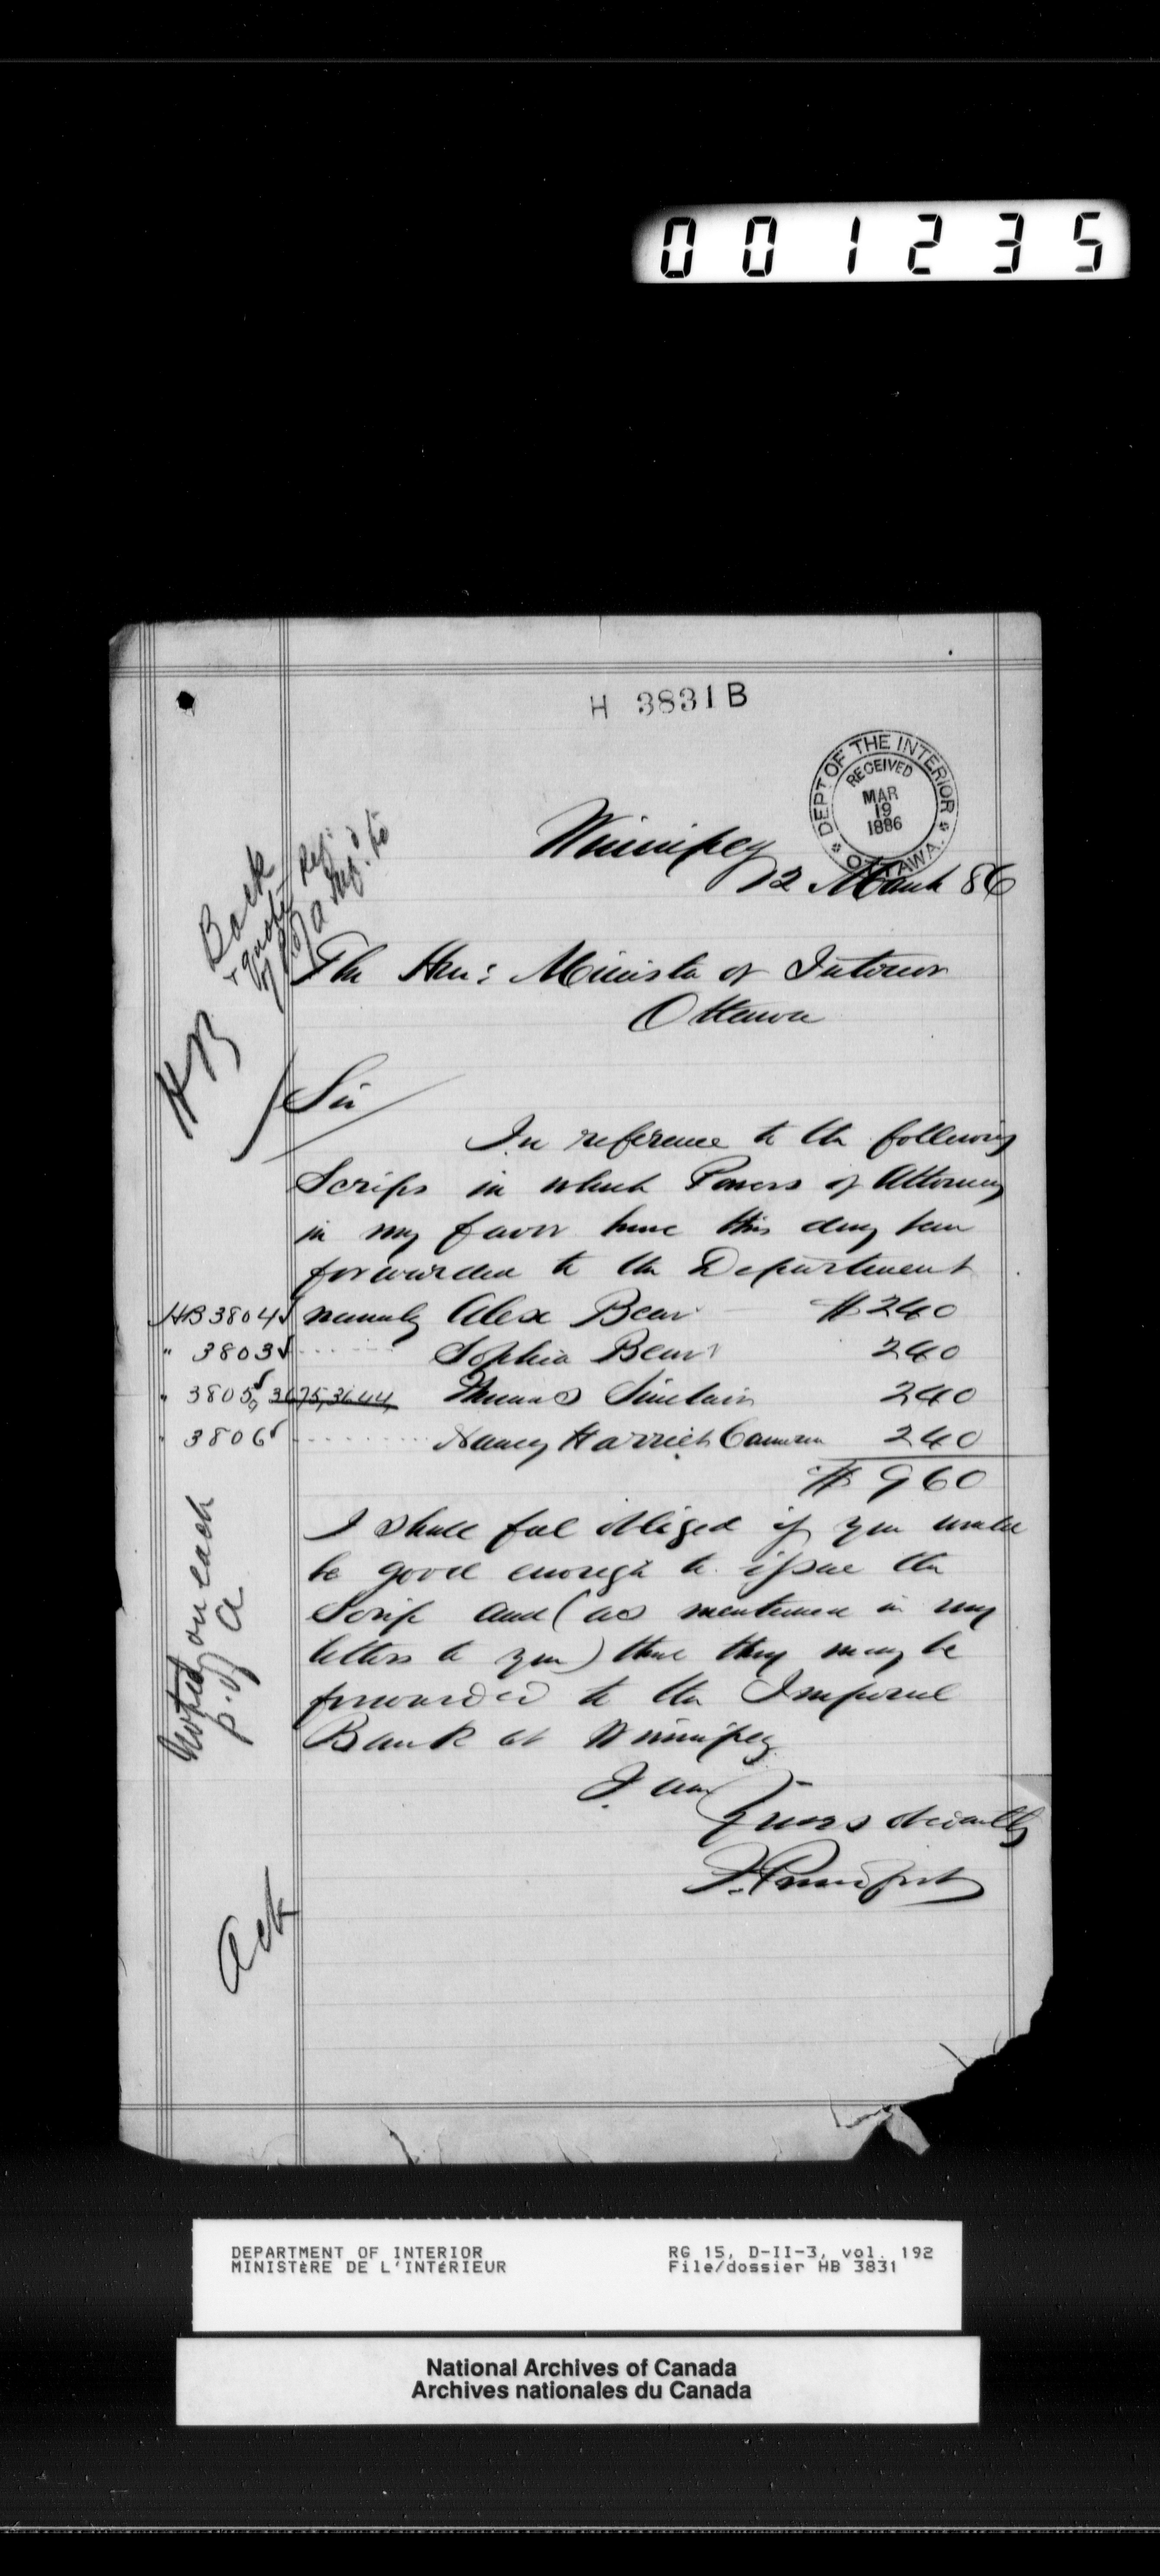 001235
H 3831 B
DEPT OF THE INTERIOR
RECEIVED
MAR
19
1886
OTTAWA.
Winnipeg
12 March 86
Back
The Hon: Minister of Interior
Ottawa
HB
Sir
In reference to the following
Scrips in which Powers of Attorney
in my favor have this day been
forwarded to the Department
HB 3804 namely Alex Bear $240
" 3803 Sophia Bear 240
" 3805, 3675, 3644, Thomas Sinclair 240
" 3806 Nancy Harriet Cameron 240
$960
I shall feel obliged if you would
be good enough to issue the
Scrip and (as mentioned in my
letters to you) that they may be
forwarded to the Imperial
Bank at Winnipeg
Noted on each
p. of a
I am
Yours
Ack
DEPARTMENT OF INTERIOR
MINISTÈRE DE L'INTÉRIEUR
RG 15, D-II-3, vol. 192
File/dossier HB 3831
National Archives of Canada
Archives nationales du Canada